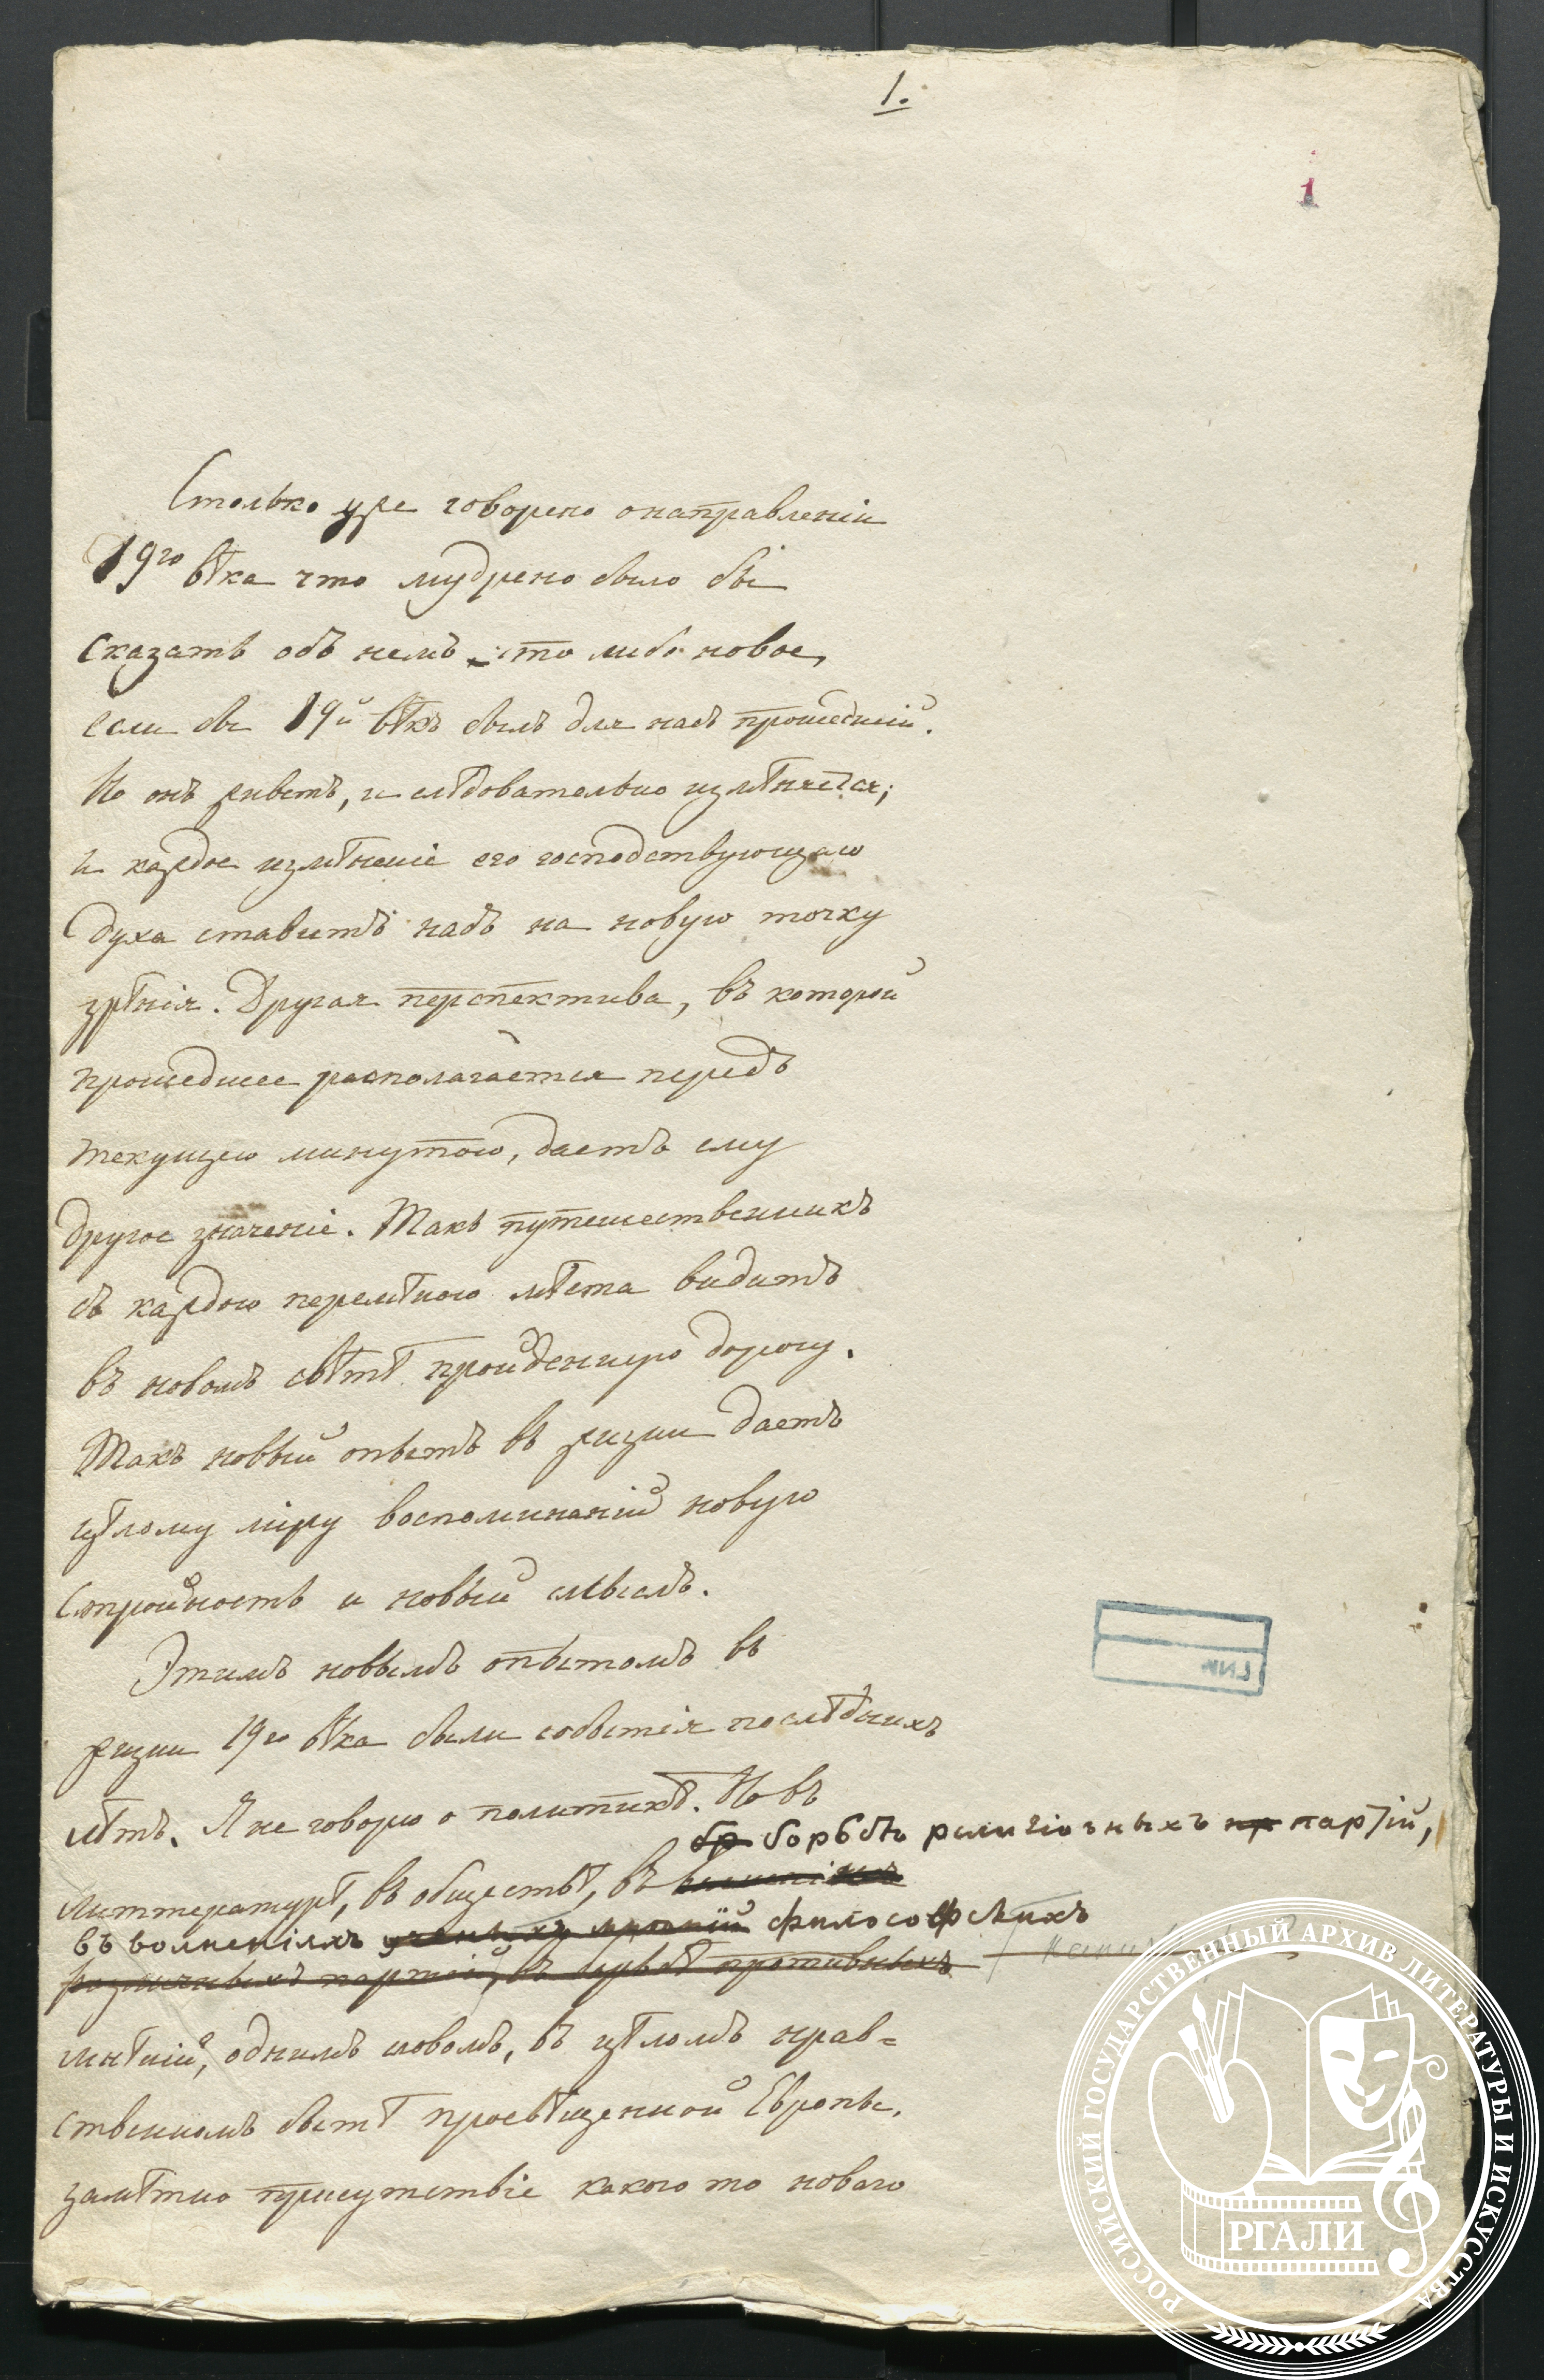 1.
1
Столько уже говорено о направленіи
19го вѣка что мудрено было бы
сказать объ немъ что либо новое,
если бы 19й вѣкъ былъ для насъ прошедшій.
Но онъ живетъ, и слѣдовательно измѣняется;
и каждое измѣненіе его господствующаго
духа ставитъ насъ на новую точку
зрѣнія. Другая перспектива, въ которой
прошедшее располагается передъ
текущею минутою, даетъ ему
другое значеніе. Такъ путешественникъ
съ каждою перемѣною мѣста видитъ
въ новомъ свѣтѣ пройденную дорогу.
Такъ новый опытъ въ жизни даетъ
цѣлому міру воспоминаній новую
стройность и новый смыслъ.
Этимъ новымъ опытомъ въ
жизни 19го вѣка были событія послѣднихъ
лѣтъ. Я не говорю о политикѣ. Но въ
бр борьбѣ религіозныхъ пр партій,
Литтературѣ, въ обществѣ, въ
въ волненіяхъ философскихъ
различныхъ партій, въ борьбѣ противныхъ
мнѣній, однимъ словомъ, въ цѣломъ нрав=
ственномъ бытѣ просвѣщенной Европы,
замѣтно присутствіе какого то новаго
РОССИЙСКИЙ ГОСУДАРСТВЕННЫЙ АРХИВ ЛИТЕРАТУРЫ И ИСКУССТВА
РГАЛИ